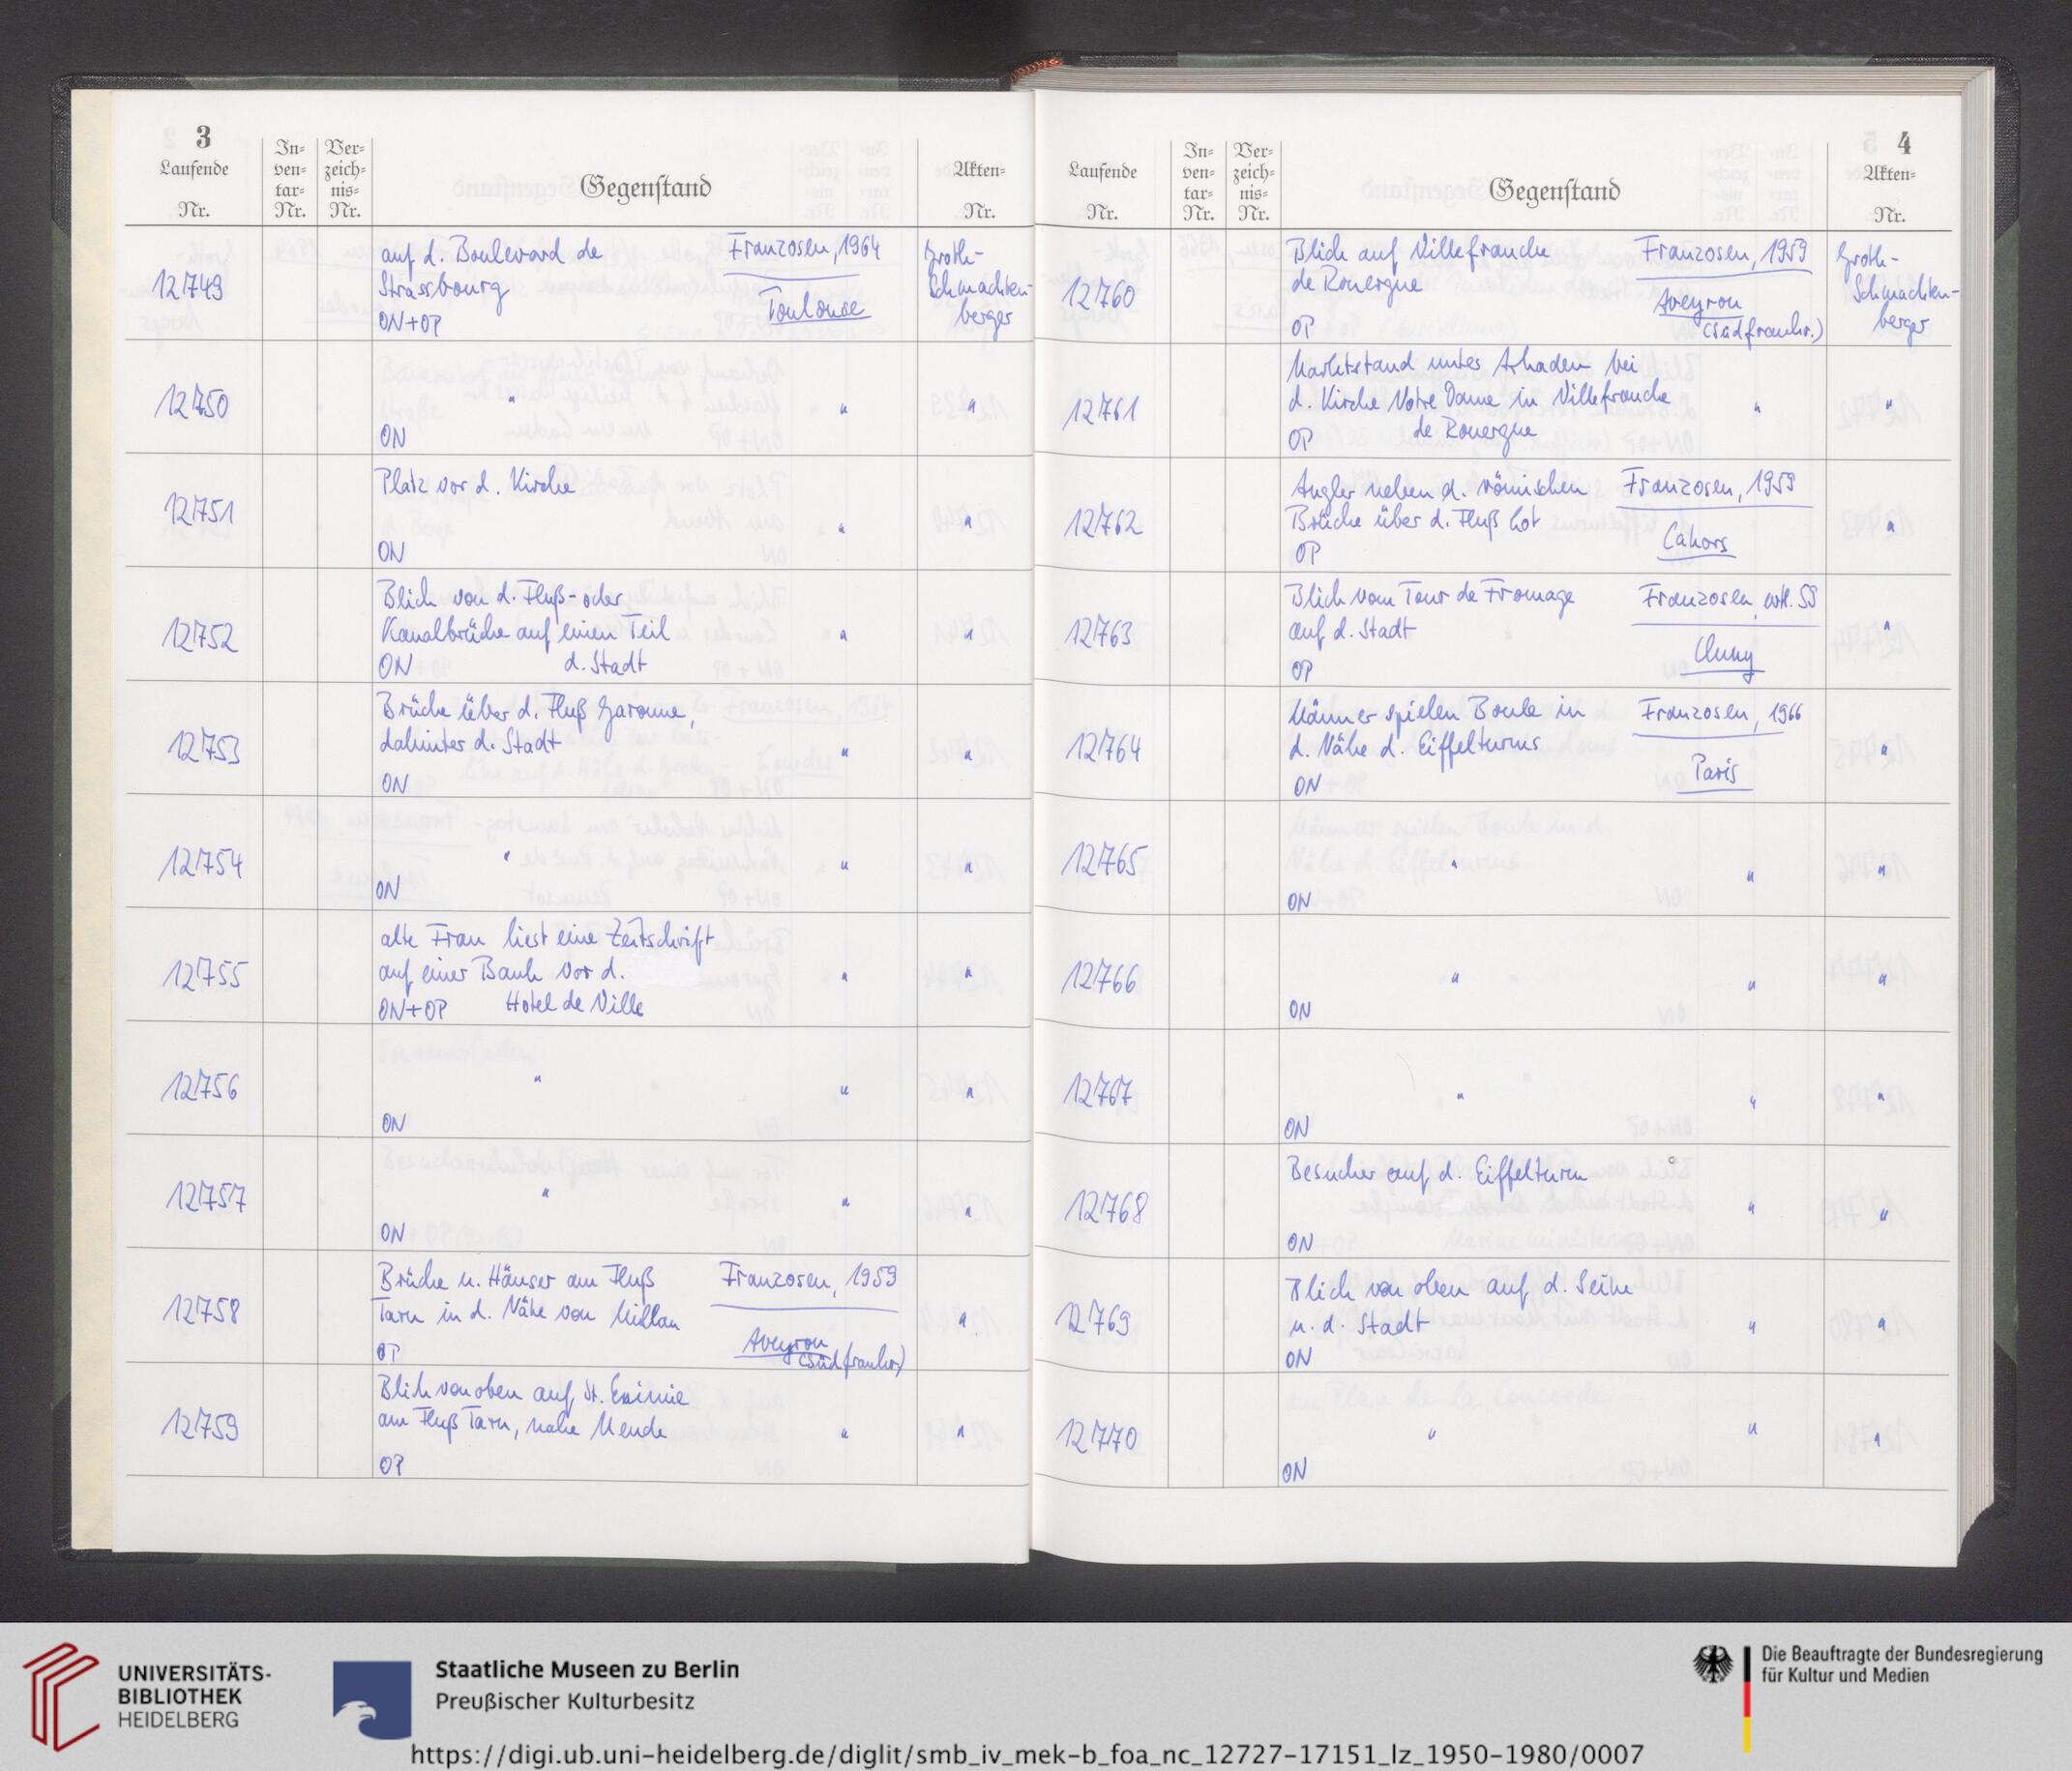 3
Laufende
Nr.
In-
ven-
tar-
Nr.
Ver-
zeich-
nis-
Nr.
Gegenstand
Akten-
Nr.
12749
auf d. Boulevard de
Strassbourg
ON+OP
Franzosen, 1964
Toulouse
Groth-
Schmachten-
berger
12750
"
ON
"
"
12751
Platz vor d. Kirche
ON
"
"
12752
Blick von d. Fluß- oder
Kanalbrücke auf einen Teil
ON d. Stadt
"
"
12753
Brücke über d. Fluß Garonne,
dahinter d. Stadt
ON
"
"
12754
"
ON
"
"
12755
alte Frau liest eine Zeitschrift
auf einer Bank vor d.
ON+OP Hotel de Ville
"
"
12756
"
ON
"
"
12757
"
ON
"
"
12758
Brücke u. Häuser am Fluß
Tarn in d. Nähe von Millau
OP
Franzosen, 1959
Aveyron
(Südfrankr.)
"
12759
Blick von oben auf St. Enimie
am Fluß Tarn, nahe Mende
OP
"
"
4
Laufende
Nr.
In-
ven-
tar-
Nr.
Ver-
zeich-
nis-
Nr.
Gegenstand
Akten-
Nr.
12760
Blick auf Villefranche
de Rouergue
OP
Franzosen, 1959
Aveyron
(Südfrankr.)
Groth-
Schmachten-
berger
12761
Marktstand unter Arkaden bei
d. Kirche Notre Dame in Villefranche
OP de Rouergue
"
"
12762
Angler neben d. römischen
Brücke über d. Fluß Lot
OP
Franzosen, 1959
Cahors
"
12763
Blick vom Tour de Fromage
auf d. Stadt
OP
Franzosen, 59
Cluny
"
12764
Männer spielen Boule in
d. Nähe d. Eiffelturms
ON
Franzosen, 1966
Paris
"
12765
"
ON
"
"
12766
"
ON
"
"
12767
"
ON
"
"
12768
Besucher auf d. Eiffelturm
ON
"
"
12769
Blick von oben auf d. Seine
u. d. Stadt
ON
"
"
12770
"
ON
"
"
UNIVERSITÄTS-
BIBLIOTHEK
HEIDELBERG
Staatliche Museen zu Berlin
Preußischer Kulturbesitz
Die Beauftragte der Bundesregierung
für Kultur und Medien
https://digi.ub.uni-heidelberg.de/diglit/smb_iv_mek-b_foa_nc_12727-17151_lz_1950-1980/0007